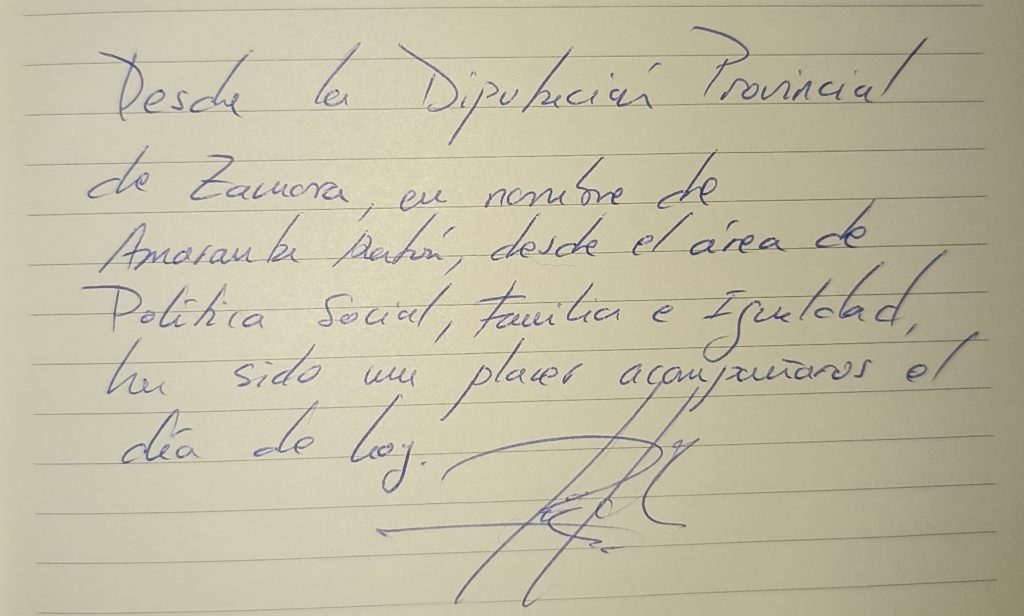 Desde la Diputación Provincial
de Zamora, en nombre de
Amaranta Ratón, desde el área de
Política Social, Familia e Igualdad,
ha sido un placer acompañaros el
día de hoy.